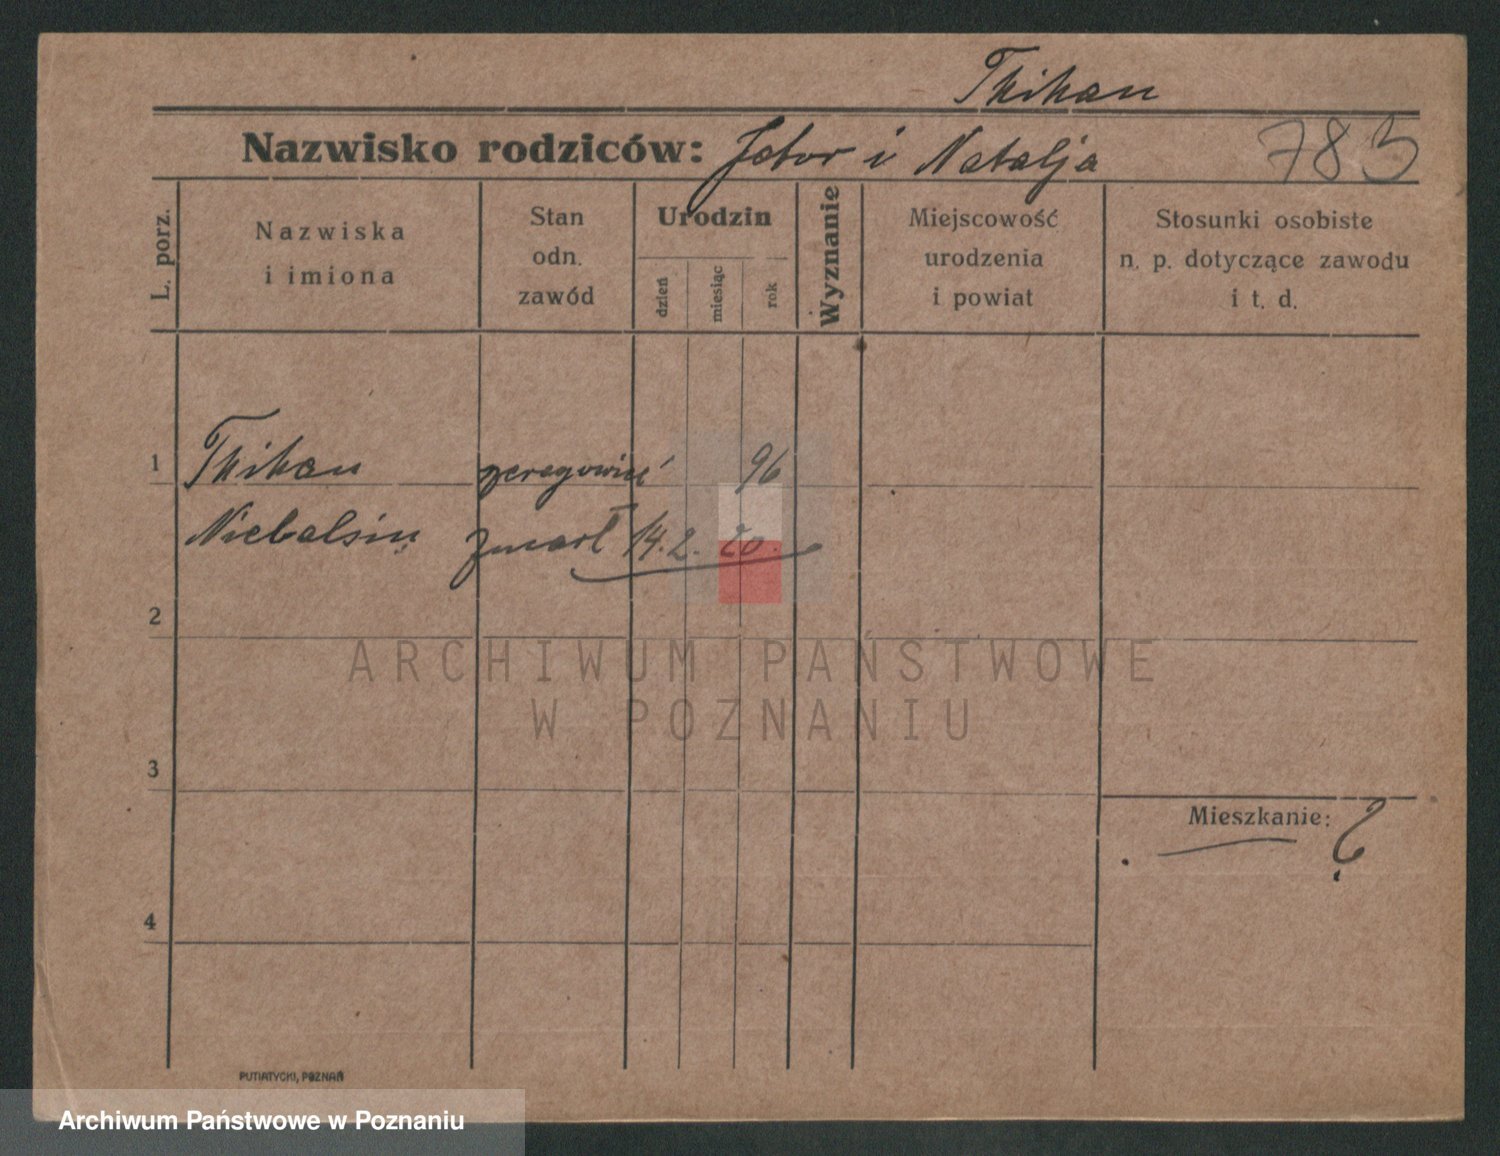 Thihan
Nazwisko rodziców: Jotor i Natalja 783
L. porz.
Nazwiska
i imiona
Stan
odn.
zawód
Urodzin
dzień
miesiąc
rok
Wyznanie
Miejscowość
urodzenia
i powiat
Stosunki osobiste
n. p. dotyczące zawodu
i t. d.
1 Thihan 96
zmarł 14.2.20.
2
ARCHIWUM PAŃSTWOWE
W POZNANIU
3
Mieszkanie: ?
4
PUTIATYCKI, POZNAŃ
Archiwum Państwowe w Poznaniu